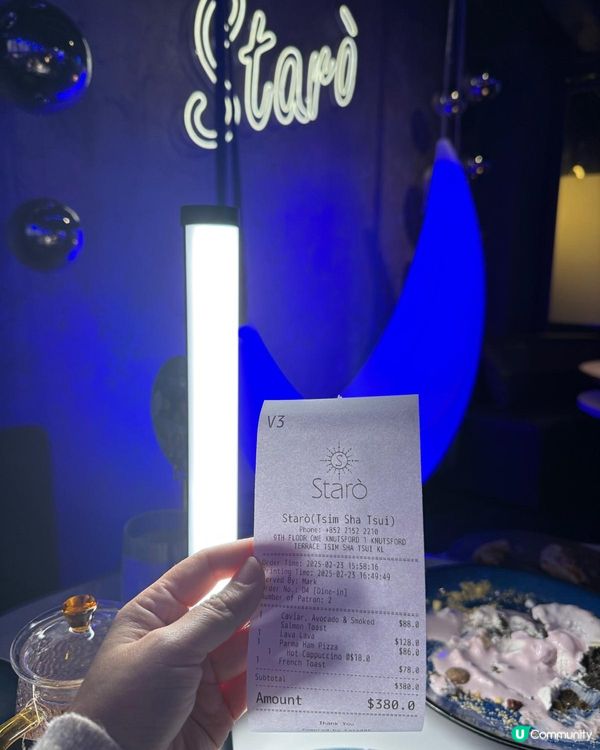 Starò
V3
S
Starò
Starò(Tsim Sha Tsui)
Phone: +852 2152 2210
9TH FLOOR ONE KNUTSFORD 1 KNUTSFORD
TERRACE TSIM SHA TSUI KL
Order Time: 2025-02-23 15:58:16
Printing Time: 2025-02-23 16:49:49
Served By: Mark
Order No.: D4 [Dine-in]
Number of Patron: 2
1 Caviar, Avocado & Smoked $88.0
Salmon Toast
1 Lava Lava $128.0
1 Parma Ham Pizza $86.0
1 Hot Cappuccino @$18.0
1 French Toast $78.0
Subtotal $380.0
Amount $380.0
Thank You
U Community